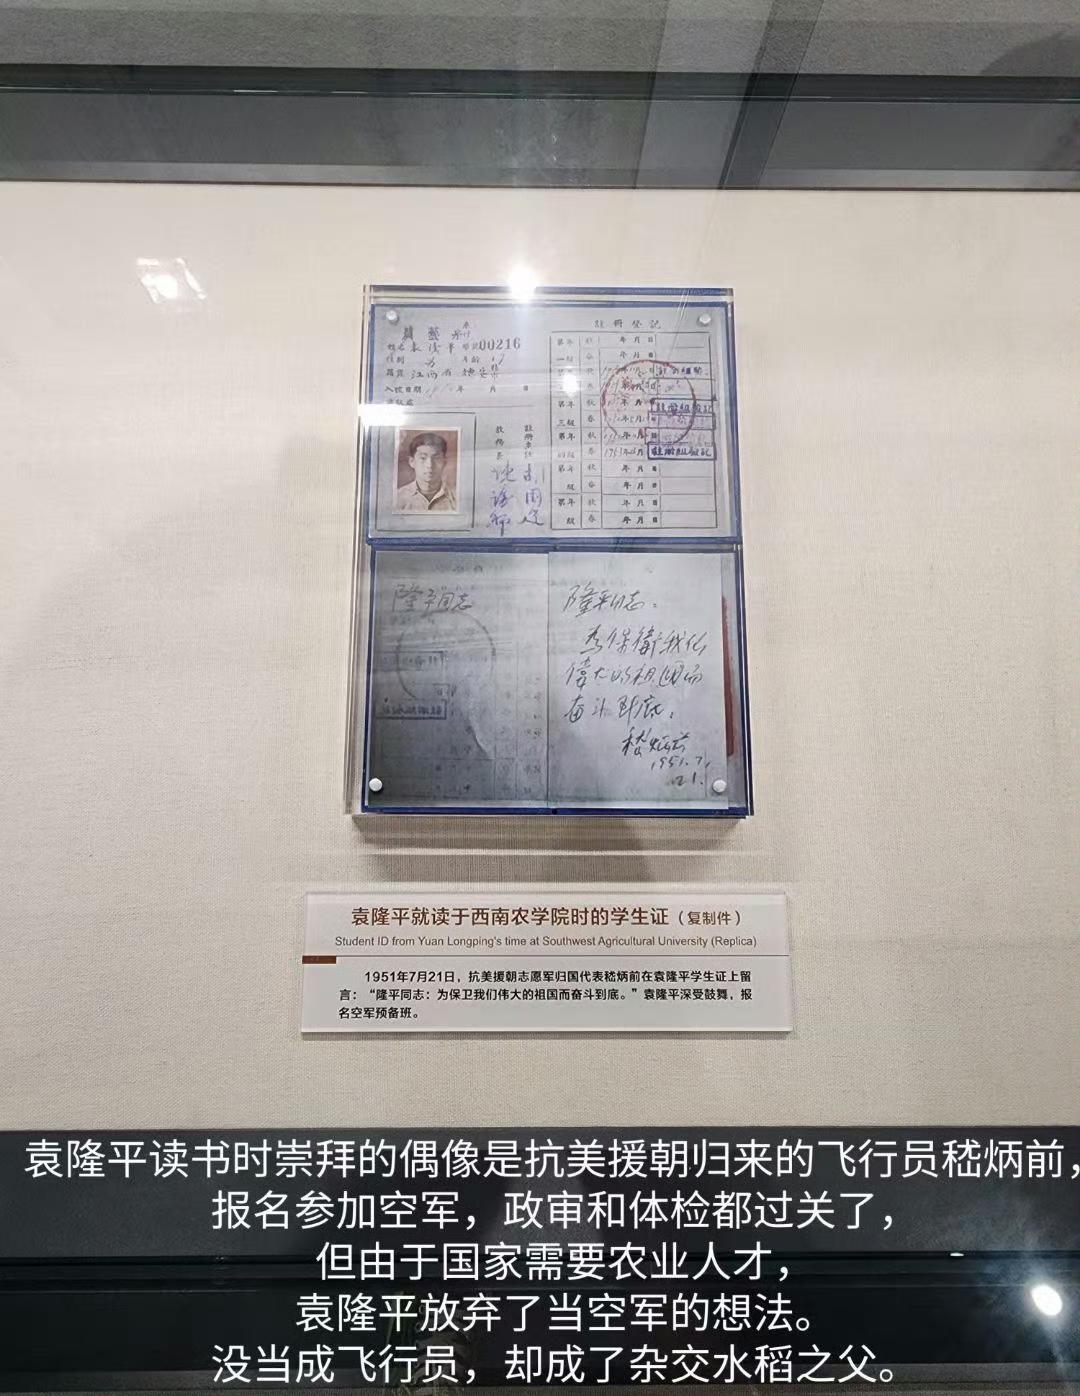 註冊登記
00216
江西省
隆平同志
隆平同志：
为保衛我们
偉大的祖国而
奋斗到底。
嵇炳前
1951.7.
21.
袁隆平就读于西南农学院时的学生证（复制件）
Student ID from Yuan Longping's time at Southwest Agricultural University (Replica)
1951年7月21日，抗美援朝志愿军归国代表嵇炳前在袁隆平学生证上留
言：“隆平同志：为保卫我们伟大的祖国而奋斗到底。”袁隆平深受鼓舞，报
名空军预备班。
袁隆平读书时崇拜的偶像是抗美援朝归来的飞行员嵇炳前，
报名参加空军，政审和体检都过关了，
但由于国家需要农业人才，
袁隆平放弃了当空军的想法。
没当成飞行员，却成了杂交水稻之父。